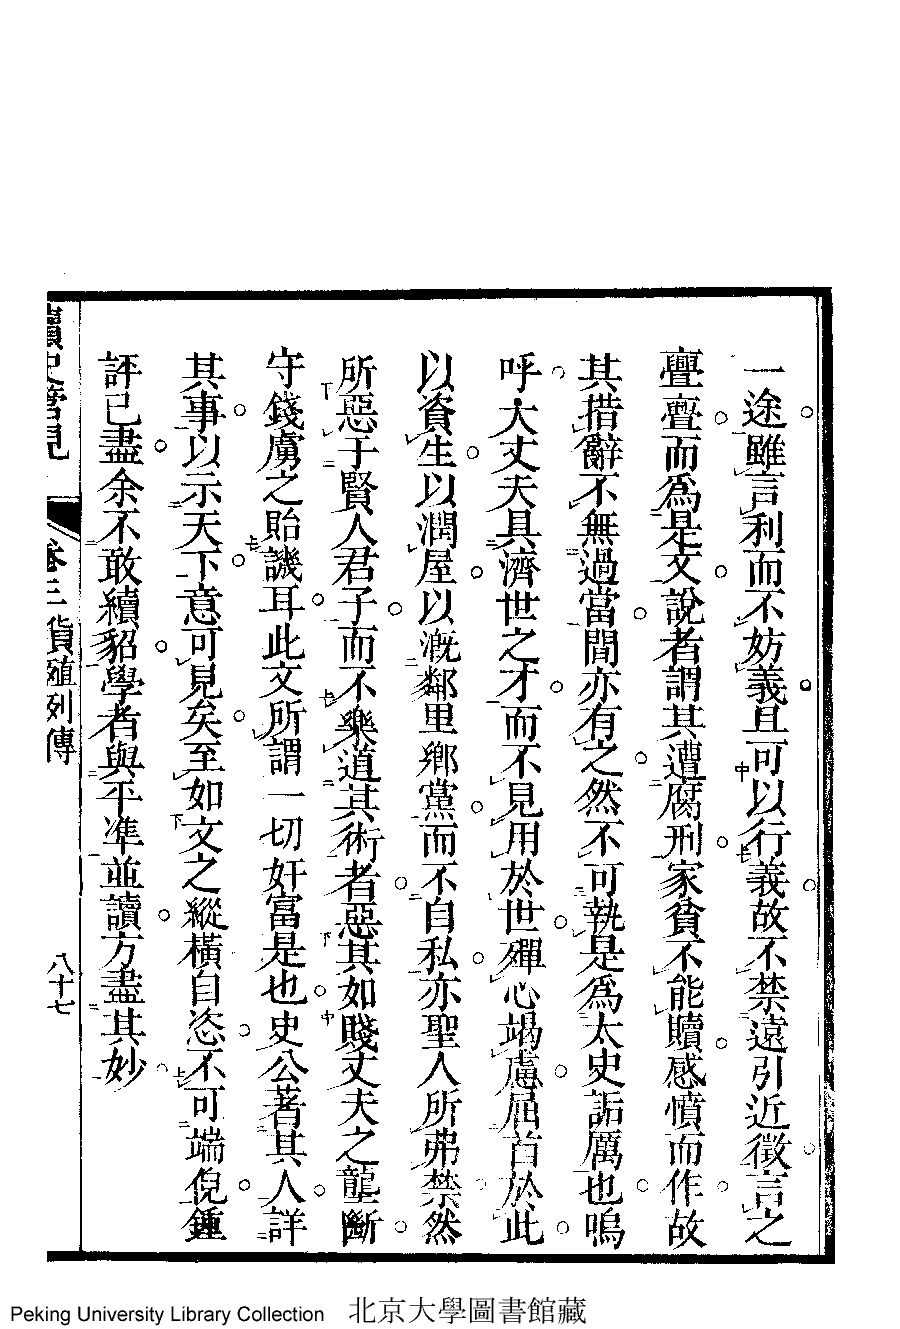 一途雖言利而不妨義且可以行義故不禁遠引近徵言之
亹亹而為是文說者謂其遭腐刑家貧不能贖感憤而作故
其措辭不無過當間亦有之然不可執是為太史詬厲也嗚
呼大丈夫具濟世之才而不見用於世殫心竭慮屈首於此
以資生以潤屋以漑鄰里鄉黨而不自私亦聖人所弗禁然
所惡于賢人君子而不樂道其術者惡其如賤丈夫之龍斷
守錢虜之貽譏耳此文所謂一切奸富是也史公著其人詳
其事以示天下意可見矣至如文之縱橫自恣不可端倪鍾
評已盡余不敢續貂學者與平準並讀方盡其妙
讀史管見
卷三 貨殖列傳
八十七
Peking University Library Collection 北京大學圖書館藏